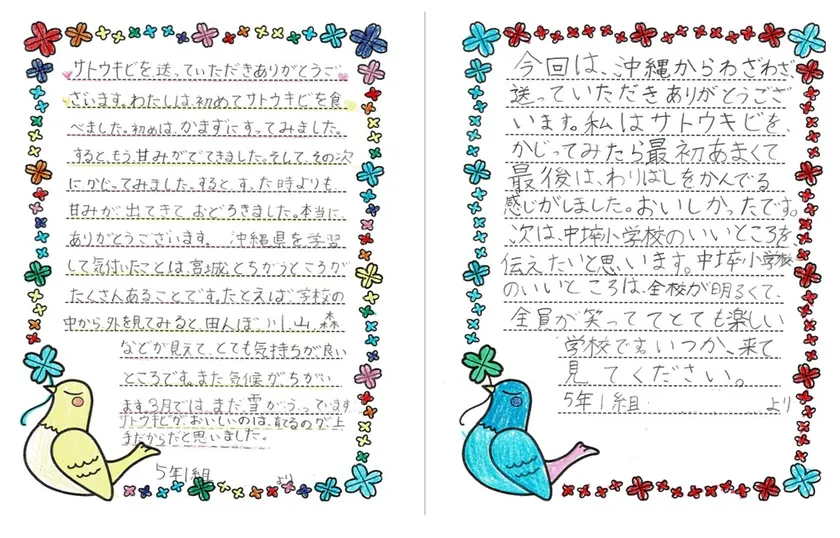 サトウキビを送っていただきありがとうご
ざいます。わたしは、初めてサトウキビを食
べました。初めは、かまずにすってみました。
すると、もう甘みがでてきました。そして、その次
にかじってみました。すると、すった時よりも、
甘みが出てきて、おどろきました。本当に、
ありがとうございます。 沖縄県を学習
して気付いたことは、宮城とちがうところが
たくさんあることです。たとえば、学校の
中から、外を見てみると、田んぼ、川、山、森
などが見えて、とても気持ちが良い
ところです。また気候がちがい
ます。3月では、まだ雪がふっています
サトウキビがおいしいのは、育てるのが上
手だからだと思いました。
5年1組 より
今回は、沖縄からわざわざ
送っていただきありがとうござ
います。私はサトウキビを、
かじってみたら最初あまくて
最後は、わりばしをかんでる
感じがしました。おいしかったです。
次は、中埣小学校のいいところを、
伝えたいと思います。中埣小学校
のいいところは、全校が明るくて、
全員が笑っててとても楽しい
学校です。いつか、来て
見てください。
5年1組 より